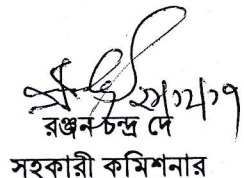 রঞ্জন চন্দ্র দে
সহকারী কমিশনার